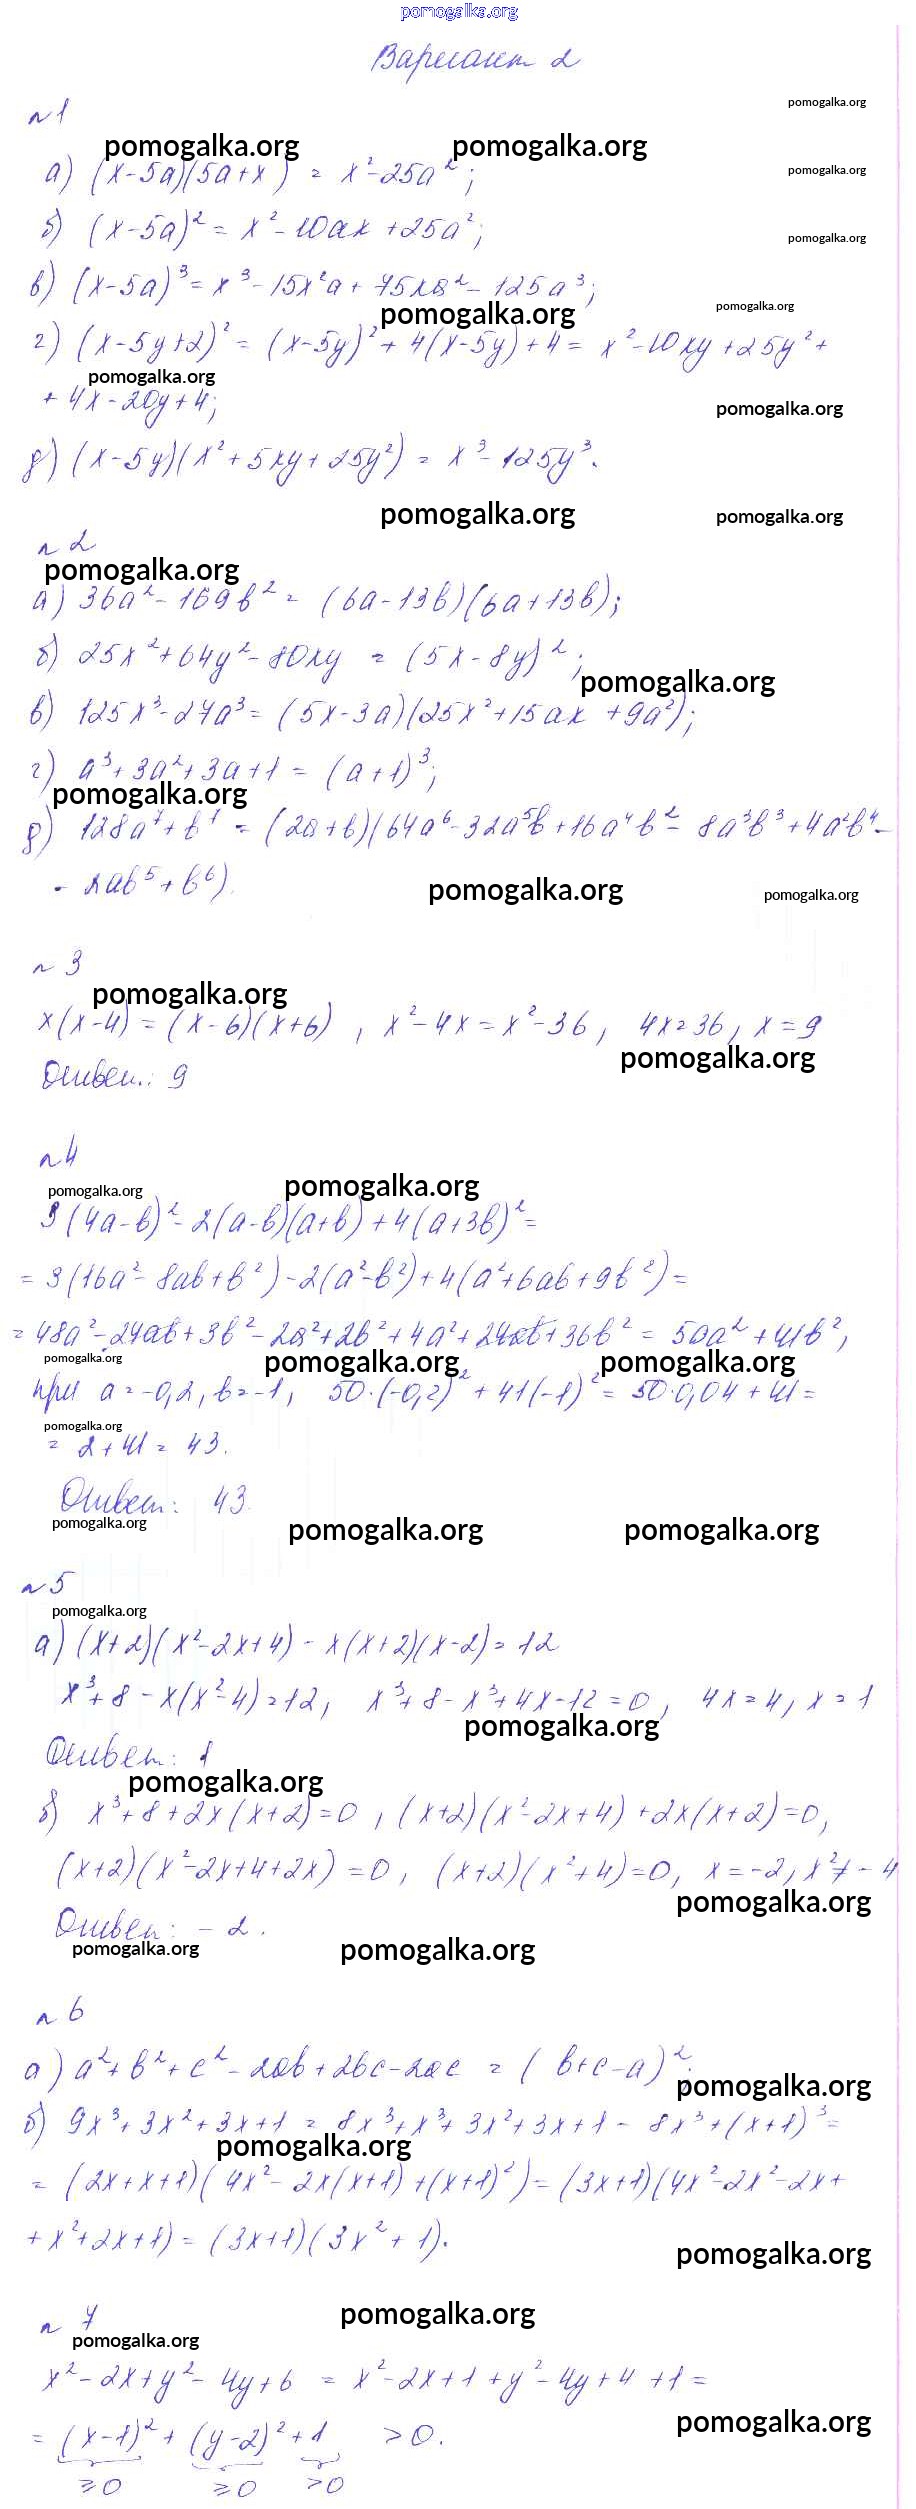 pomogalka.org
Вариант 2
pomogalka.org
№1
pomogalka.org pomogalka.org
а) (x-5a)(5a+x) = x²-25a²;
pomogalka.org
б) (x-5a)² = x²-10ax+25a²;
pomogalka.org
в) (x-5a)³ = x³-15x²a+75xa²-125a³;
pomogalka.org pomogalka.org
г) (x-5y+2)² = (x-5y)²+4(x-5y)+4 = x²-10xy+25y²+
pomogalka.org
+4x-20y+4;
pomogalka.org
д) (x-5y)(x²+5xy+25y²) = x³-125y³.
pomogalka.org pomogalka.org
№2
pomogalka.org
а) 36a²-169b² = (6a-13b)(6a+13b);
б) 25x²+64y²-80xy = (5x-8y)²;
pomogalka.org
в) 125x³-27a³ = (5x-3a)(25x²+15ax+9a²);
г) a³+3a²+3a+1 = (a+1)³;
pomogalka.org
д) 128a⁷+b⁷ = (2a+b)(64a⁶-32a⁵b+16a⁴b²-8a³b³+4a²b⁴-
-2ab⁵+b⁶).
pomogalka.org pomogalka.org
№3
pomogalka.org
x(x-4) = (x-6)(x+6), x²-4x=x²-36, 4x=36, x=9
pomogalka.org
Ответ: 9
№4
pomogalka.org pomogalka.org
3(4a-b)²-2(a-b)(a+b)+4(a+3b)²=
=3(16a²-8ab+b²)-2(a²-b²)+4(a²+6ab+9b²)=
=48a²-24ab+3b²-2a²+2b²+4a²+24ab+36b²=50a²+41b²,
pomogalka.org pomogalka.org pomogalka.org
при a=-0,2, b=-1, 50·(-0,2)²+41(-1)²=50·0,04+41=
pomogalka.org
=2+41=43.
Ответ: 43.
pomogalka.org pomogalka.org pomogalka.org
№5
pomogalka.org
а) (x+2)(x²-2x+4)-x(x+2)(x-2)=12
x³+8-x(x²-4)=12, x³+8-x³+4x-12=0, 4x=4, x=1
pomogalka.org
Ответ: 1
pomogalka.org
б) x³+8+2x(x+2)=0, (x+2)(x²-2x+4)+2x(x+2)=0,
(x+2)(x²-2x+4+2x)=0, (x+2)(x²+4)=0, x=-2, x²≠-4
pomogalka.org
Ответ: -2.
pomogalka.org pomogalka.org
№6
а) a²+b²+c²-2ab+2bc-2ac = (b+c-a)²;
pomogalka.org
б) 9x³+3x²+3x+1 = 8x³+x³+3x²+3x+1 = 8x³+(x+1)³=
pomogalka.org
=(2x+x+1)(4x²-2x(x+1)+(x+1)²)=(3x+1)(4x²-2x²-2x+
+x²+2x+1)=(3x+1)(3x²+1).
pomogalka.org
№7
pomogalka.org
pomogalka.org
x²-2x+y²-4y+6 = x²-2x+1+y²-4y+4+1=
pomogalka.org
=(x-1)²+(y-2)²+1 >0.
≥0 ≥0 >0